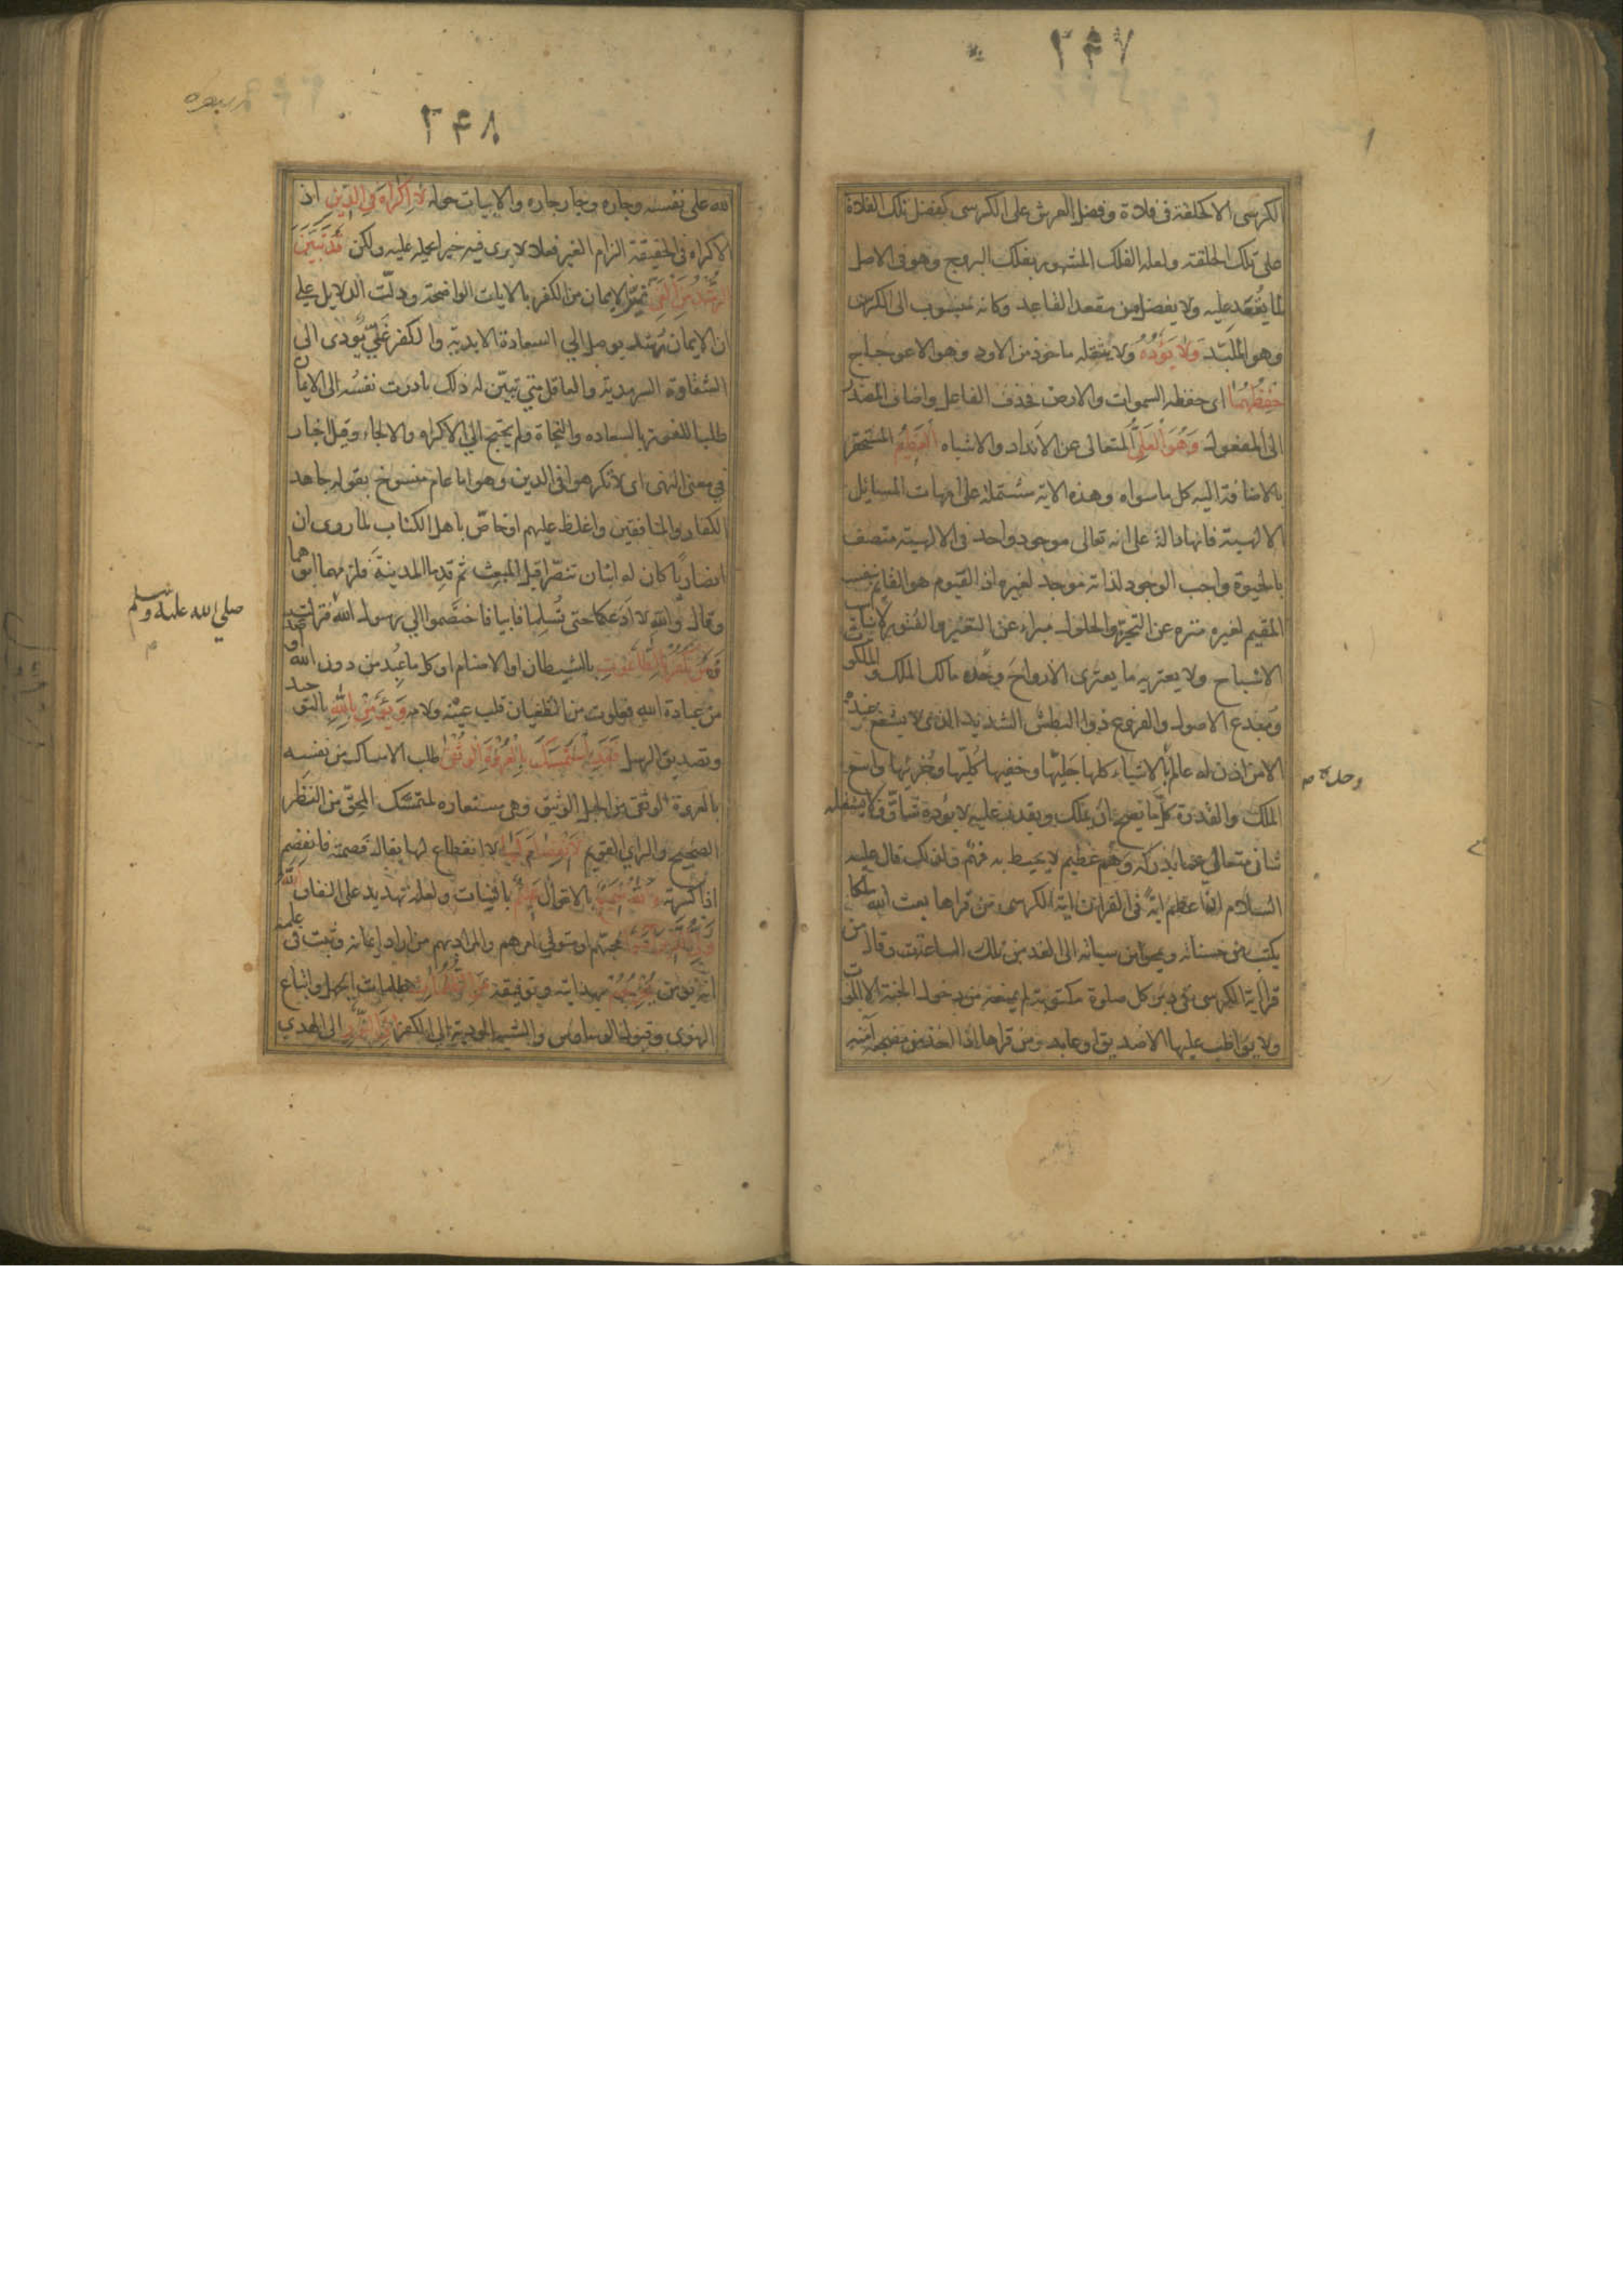 ٢٤٧
لكرسى الا كحلقة فى فلاة وفضل العرش على الكرسى كفضل تلك الفلاة
على تلك الحلقة ولعله الفلك المشهور بفلك البروج وهو فى الاصل
لما يُقعد عليه ولا يفضل من مقعد القاعد وكانه منسوب الى الكرس
وهو الملبّد وَلا يَؤُدُهُ ولا يثقله ماخوذ من الاود وهو الاعوجاج
حِفظُهُما اى حفظه السموات والارض فحذف الفاعل واضاف المصدر
الى المفعول وَهُوَ العَلِىُّ المتعالى عن الانداد والاشباه العَظِيمُ المستحقر
بالاضافة اليه كل ما سواه وهذه الاية مشتملة على امهات المسايل
الالهية فانها دالة على انه تعالى موجود واحد فى الالهية متصف
بالحيوة واجب الوجود لذاته موجد لغيره اذ القيوم هو القايم بنفسه
المقيم لغيره منزه عن التحيز والحلول مبراء عن التغير والفتور لا يناسب
الاشباح ولا يعتريه ما يعترى الارواح وحده مالك الملك والملكوت
ومبدع الاصول والفروع ذوا البطش الشديد الذى لا يشفع عنده
الا من اذن له عالم بالاشياء كلها جَليّها وخفيها كُليّها وجُزئيها واسع
وحده م
الملك والقدرة كل ما يصح ان يملك ويقدر عليه لا يؤده شاق ولا يشغله
شان متعالى عما يدركه وهم عظيم لا يحيط به فهم ولذلك قال عليه
السلام ان اعظم اية فى القران اية الكرسى من قراها بعث الله ملكا
يكتب من حسناته ويمحو من سيياته الى الغد من تلك الساعة وقال من
قرا اية الكرسى فى دبر كل صلوة مكتوبة لم يمنعه من دخول الجنة الا الموت
ولا يواظب عليها الا صديق او عابد ومن قراها اذا اخذ من مضجعه آمنه
٢٤٨
الله على نفسه وجاره وجار جاره والابيات حوله لا اِكْراهَ فِى الدِّينِ اذ
الاكراه فى الحقيقة الزام الغير فعلا لا يرى فيه خيرا يحمله عليه ولكن قَدْ تَبَيَّنَ
الرُّشْدُ مِنَ الْغَىِّ تميّز الايمان من الكفر بالايات الواضحة ودلّت الدلايل على
ان الايمان رُشد يوصل الى السعادة الابدية والكفر غَىّ يؤدى الى
الشقاوة السرمدية والعاقل متى تبيّن له ذلك بادرت نفسُه الى الايمان
طلبا للفوز بالسعاده والنجاة ولم يحتج الى الاكراه والالجاء وقيل اخبار
فى معنى النهى اى لا تكرهوا فى الدين وهو اما عام منسوخ بقوله جاهد
الكفار والمنافقين واغلظ عليهم او خاصّ باهل الكتاب لما روى ان
انصاريّا كان له ابنان تنصّرا قبل المبعث ثم قدما المدينة فلزمهما ابوهما
وقال والله لا ادعكما حتى تُسلِما فابيا فاختصموا الى رسول الله فنزلت
صلي الله عليه وسلم
م
فَمَنْ يَكْفُرْ بِالطّاغُوتِ بالشيطان او الاصنام او كل ما عبد من دون الله او صد
من عبادة الله فعلوت من الطغيان قلب عينه ولامه وَيُؤْمِنْ بِاللهِ بالتوحيد
وتصديق الرسل فَقَدِ اسْتَمْسَكَ بِالْعُرْوَةِ الْوُثْقى طلب الامساك من نفسه
بالعروة الوثقى من الحبل الوثيق وهى مستعاره لمتمسك المحقّ من النظر
الصحيح والراى القويم لَا انْفِصامَ لَها لا انقطاع لها يقال فصمته فانفصم
اذا كسرته وَاللهُ سَمِيعٌ بالاقوال عَلِيمٌ بالنيات ولعله تهديد على النفاق اللهُ
وَلِىُّ الَّذِينَ آمَنُوا محبّهم او متولى امرهم والمراد بهم من اراد ايمانه وثبت فى علمه
انه يؤمن يُخْرِجُهُمْ بهدايته وتوفيقه مِنَ الظُّلُماتِ ظلمات الجهل واتباع
الهوى وقبول الوساوس والشبه المودية الى الكفر اِلَى النُّورِ الى الهدي